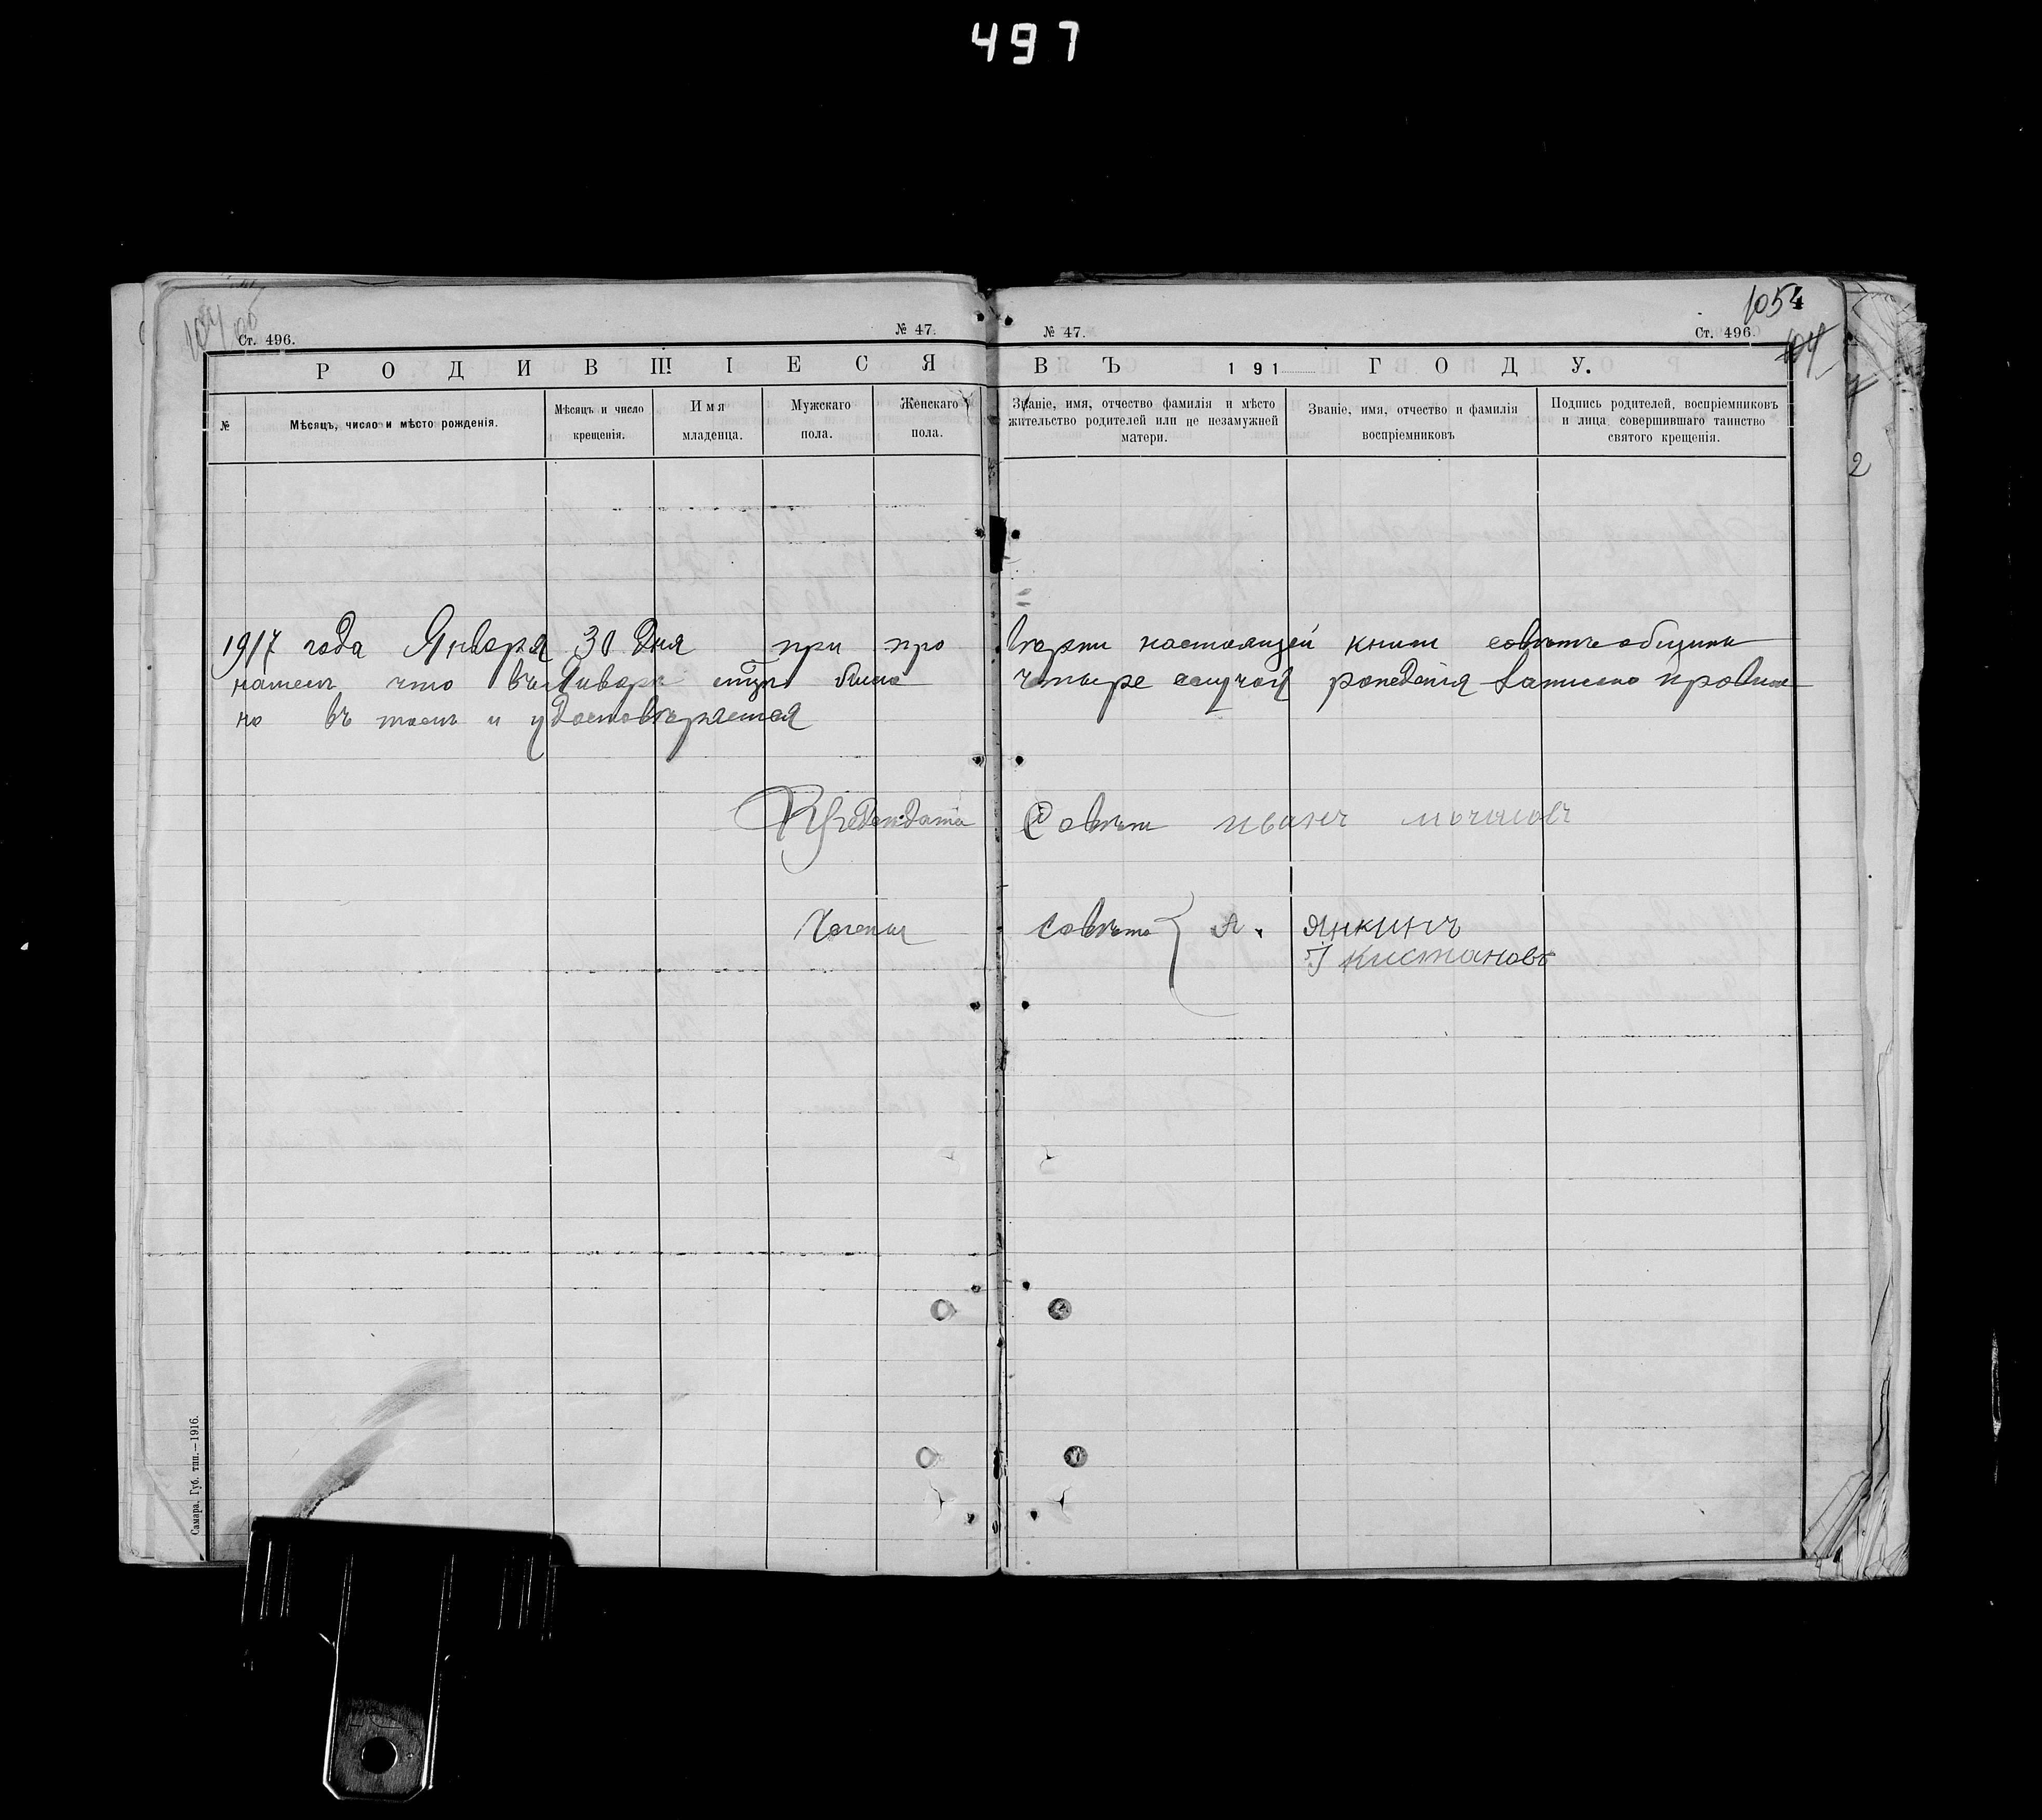 497
1054
104
Ст. 496.
№ 47.
№ 47.
Ст. 496.
РОДИВШІЕСЯ ВЪ 191 ГОДУ.
№
Мѣсяцъ, число и мѣсто рожденія.
Мѣсяцъ и число крещенія.
Имя младенца.
Мужскаго пола.
Женскаго пола.
Званіе, имя, отчество фамилія и мѣсто
жительство родителей или не незамужней
матери.
Званіе, имя, отчество и фамилія
воспріемниковъ
Подпись родителей, воспріемниковъ
и лица совершившаго таинство
святого крещенія.
2
1917 года Января 30 дня при про вѣрки настоящей книги совѣтъ общины
нашелъ что въ Январѣ было четыре случая рожденія записано правиль
но въ томъ и удостовѣряется
Совѣта иванъ мочаловъ
Совѣта А. Янкинъ
Кистановъ
Самара, Губ. тип.—1916.